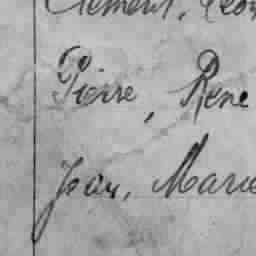 Clément, Léon
Pierre, René
Jean, Marie